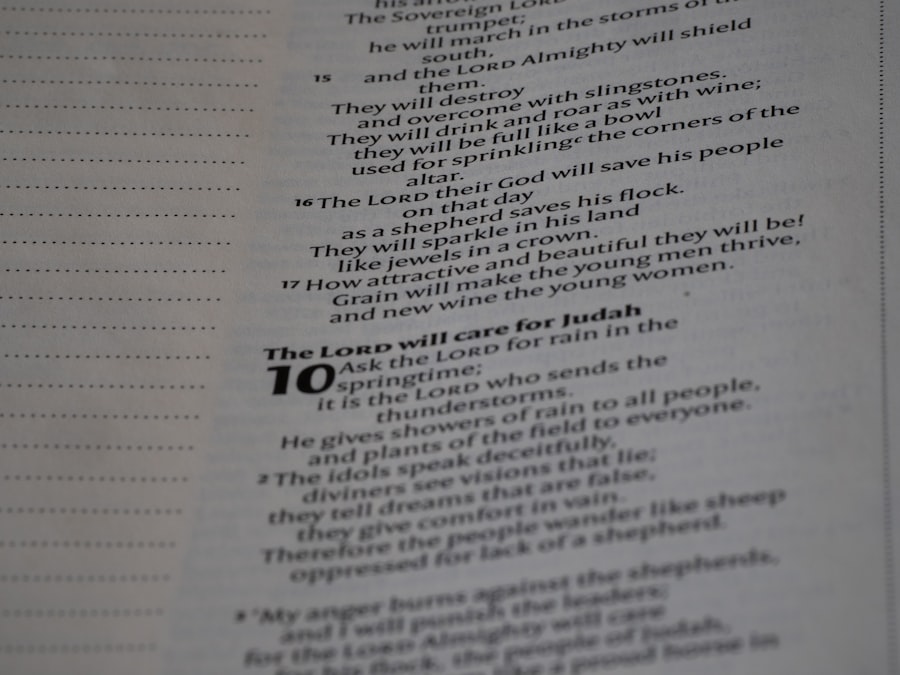 his
The Sovereign LORD
trumpet;
he will march in the storms of
south,
15 and the LORD Almighty will shield
them.
They will destroy
and overcome with slingstones.
They will drink and roar as with wine;
they will be full like a bowl
used for sprinklingc the corners of the
altar.
16 The LORD their God will save his people
on that day
as a shepherd saves his flock.
They will sparkle in his land
like jewels in a crown.
17 How attractive and beautiful they will be!
Grain will make the young men thrive,
and new wine the young women.
The LORD will care for Judah
10 Ask the LORD for rain in the
springtime;
it is the LORD who sends the
thunderstorms.
He gives showers of rain to all people,
and plants of the field to everyone.
2 The idols speak deceitfully,
diviners see visions that lie;
they tell dreams that are false,
they give comfort in vain.
Therefore the people wander like sheep
oppressed for lack of a shepherd.
3 ‘My anger burns against the shepherds,
and I will punish the leaders;
for the LORD Almighty will care
for his flock, the people of Judah,
like a proud horse in